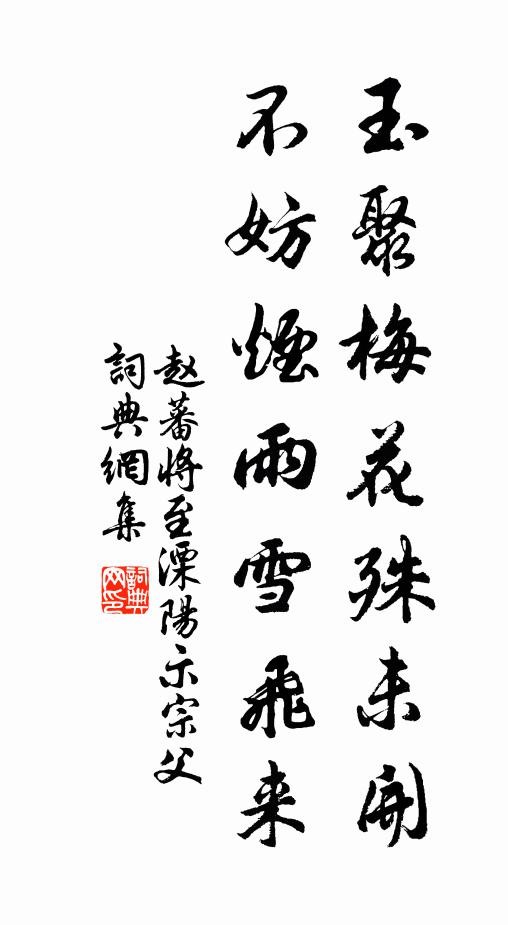 玉聚梅花殊未開
不妨煙雨雪飛来
赵蕃将至溧陽示宗父
詞典網集
詞典网印